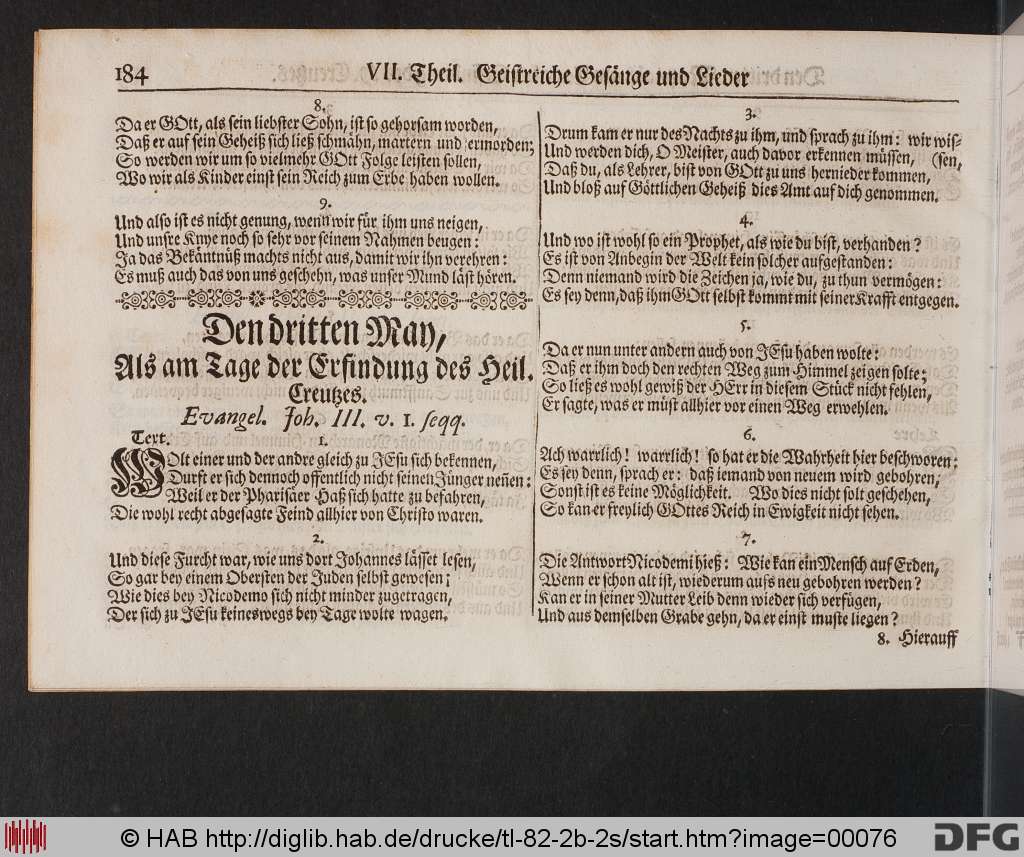 184 VII. Theil. Geistreiche Gesänge und Lieder
8.
Da er GOtt, als sein liebster Sohn, ist so gehorsam worden,
Daß er auf sein Geheiß sich ließ schmähn, martern und ermorden;
So werden wir um so vielmehr GOtt Folge leisten sollen,
Wo wir als Kinder einst sein Reich zum Erbe haben wollen.
9.
Und also ist es nicht genung, wenn wir für ihm uns neigen,
Und unsre Knye noch so sehr vor seinem Nahmen beugen:
Ja das Bekäntnüß machts nicht aus, damit wir ihn verehren:
Es muß auch das von uns geschehn, was unser Mund läst hören.
Den dritten May,
Als am Tage der Erfindung des Heil.
Creutzes.
Evangel. Joh. III. v. 1. seqq.
Text. 1.
WOlt einer und der andre gleich zu JEsu sich bekennen,
Durft er sich dennoch offentlich nicht seinen Jünger neñen:
Weil er der Pharisäer Haß sich hatte zu befahren,
Die wohl recht abgesagte Feind allhier von Christo waren.
2.
Und diese Furcht war, wie uns dort Johannes lässet lesen,
So gar bey einem Obersten der Juden selbst gewesen;
Wie dies bey Nicodemo sich nicht minder zugetragen,
Der sich zu JEsu keineswegs bey Tage wolte wagen.
3.
Drum kam er nur des Nachts zu ihm, und sprach zu ihm: wir wis-
Und werden dich, O Meister, auch davor erkennen müssen, (sen,
Daß du, als Lehrer, bist von GOtt zu uns hernieder kommen,
Und bloß auf Göttlichen Geheiß dies Amt auf dich genommen.
4.
Und wo ist wohl so ein Prophet, als wie du bist, verhanden?
Es ist von Anbegin der Welt kein solcher aufgestanden:
Denn niemand wird die Zeichen ja, wie du, zu thun vermögen:
Es sey denn, daß ihm GOtt selbst kommt mit seiner Krafft entgegen.
5.
Da er nun unter andern auch von JEsu haben wolte:
Daß er ihm doch den rechten Weg zum Himmel zeigen solte;
So ließ es wohl gewiß der HErr in diesem Stück nicht fehlen,
Er sagte, was er müst allhier vor einen Weg erwehlen.
6.
Ach warrlich! warrlich! so hat er die Wahrheit hier beschworen:
Es sey denn, sprach er: daß iemand von neuem wird gebohren,
Sonst ist es keine Möglichkeit. Wo dies nicht solt geschehen,
So kan er freylich GOttes Reich in Ewigkeit nicht sehen.
7.
Die Antwort Nicodemi hieß: Wie kan ein Mensch auf Erden,
Wenn er schon alt ist, wiederum aufs neu gebohren werden?
Kan er in seiner Mutter Leib denn wieder sich verfügen,
Und aus demselben Grabe gehn, da er einst muste liegen?
8. Hierauff
© HAB http://diglib.hab.de/drucke/tl-82-2b-2s/start.htm?image=00076
DFG